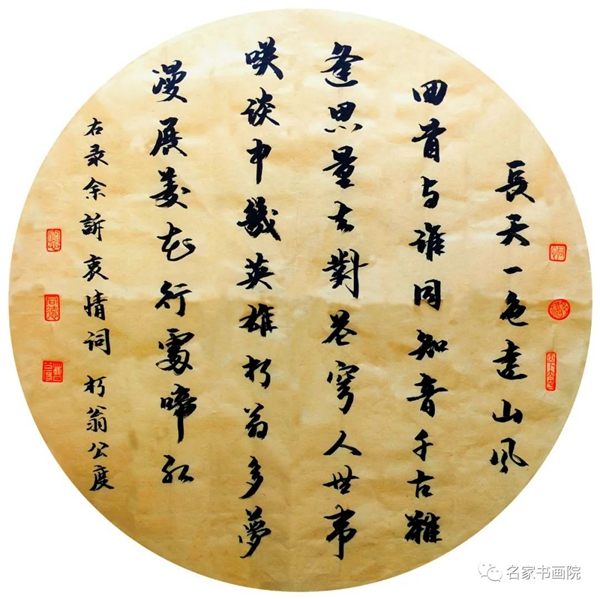 長天一色遠山风
回首与谁同知音千古難
逢思量對苍穹人世事
咲谈中幾英雄朽翁多夢
漫展菱花行處啼红
右录余訴衷情词 朽翁公度
名家书画院